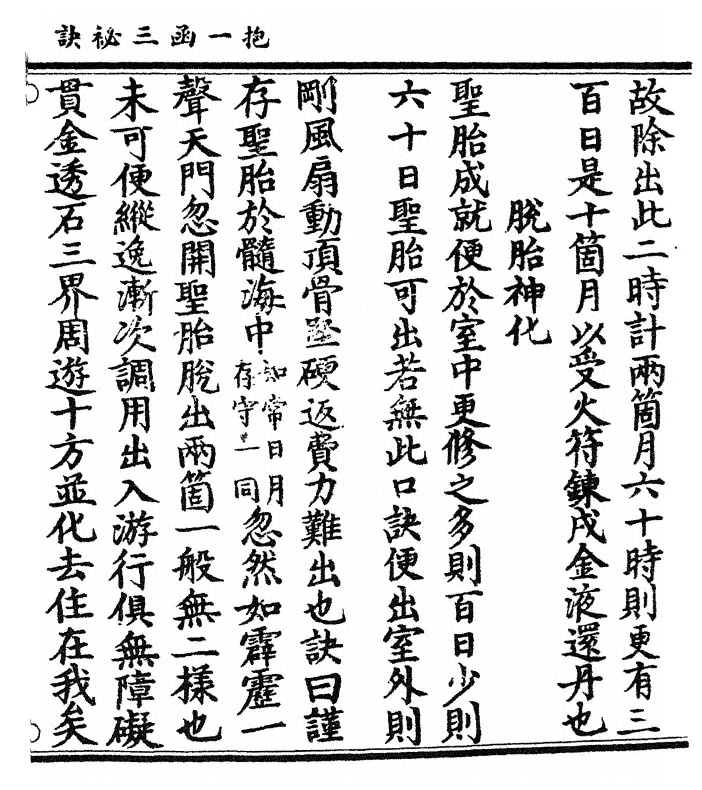 抱一函三祕訣
故除出此二時計兩箇月六十時則更有三
百日是十箇月以受火符鍊成金液還丹也
脫胎神化
聖胎成就便於室中更修之多則百日少則
六十日聖胎可出若無此口訣便出室外則
剛風扇動頂骨堅硬返費力難出也訣曰謹
存聖胎於髓海中如常日月存守一同忽然如霹靂一
聲天門忽開聖胎脫出兩箇一般無二樣也
未可便縱逸漸次調用出入游行俱無障礙
貫金透石三界周遊十方並化去住在我矣